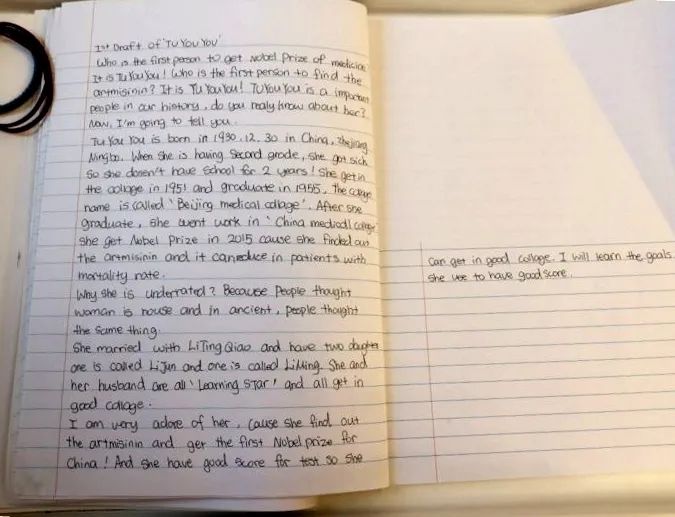 1st Draft of 'Tu You You'
Who is the first person to get Nobel Prize of medicine
It is Tu You You! Who is the first person to find the
artmisinin? It is Tu You You! Tu You You is a important
people in our history, do you realy know about her?
Now, I'm going to tell you.
Tu You You is born in 1930.12.30 in China, zhejiang
Ningbo. When she is having Second grade, she got sick
So she dosen't have school for 2 years! She get in
the collage in 1951 and graduate in 1955, the collage
name is called 'Beijing medical collage'. After she
graduate, she went work in 'China medical collage'
she get Nobel Prize in 2015 cause she finded out
the artmisinin and it can reduce in patients with
mortality rate.
Why she is underrated? Because People thought
woman is house and in ancient, people thought
the same thing.
She married with Li Ting Qiao and have two daughter
one is called Li Jun and one is called Li Ming. She and
her husband are all 'Learning STar' and all get in
good collage.
I am very adore of her, cause she find out
the artmisinin and get the first Nobel prize for
China! And she have good score for test so she
Can get in good collage. I will learn the goals
she use to have good score.